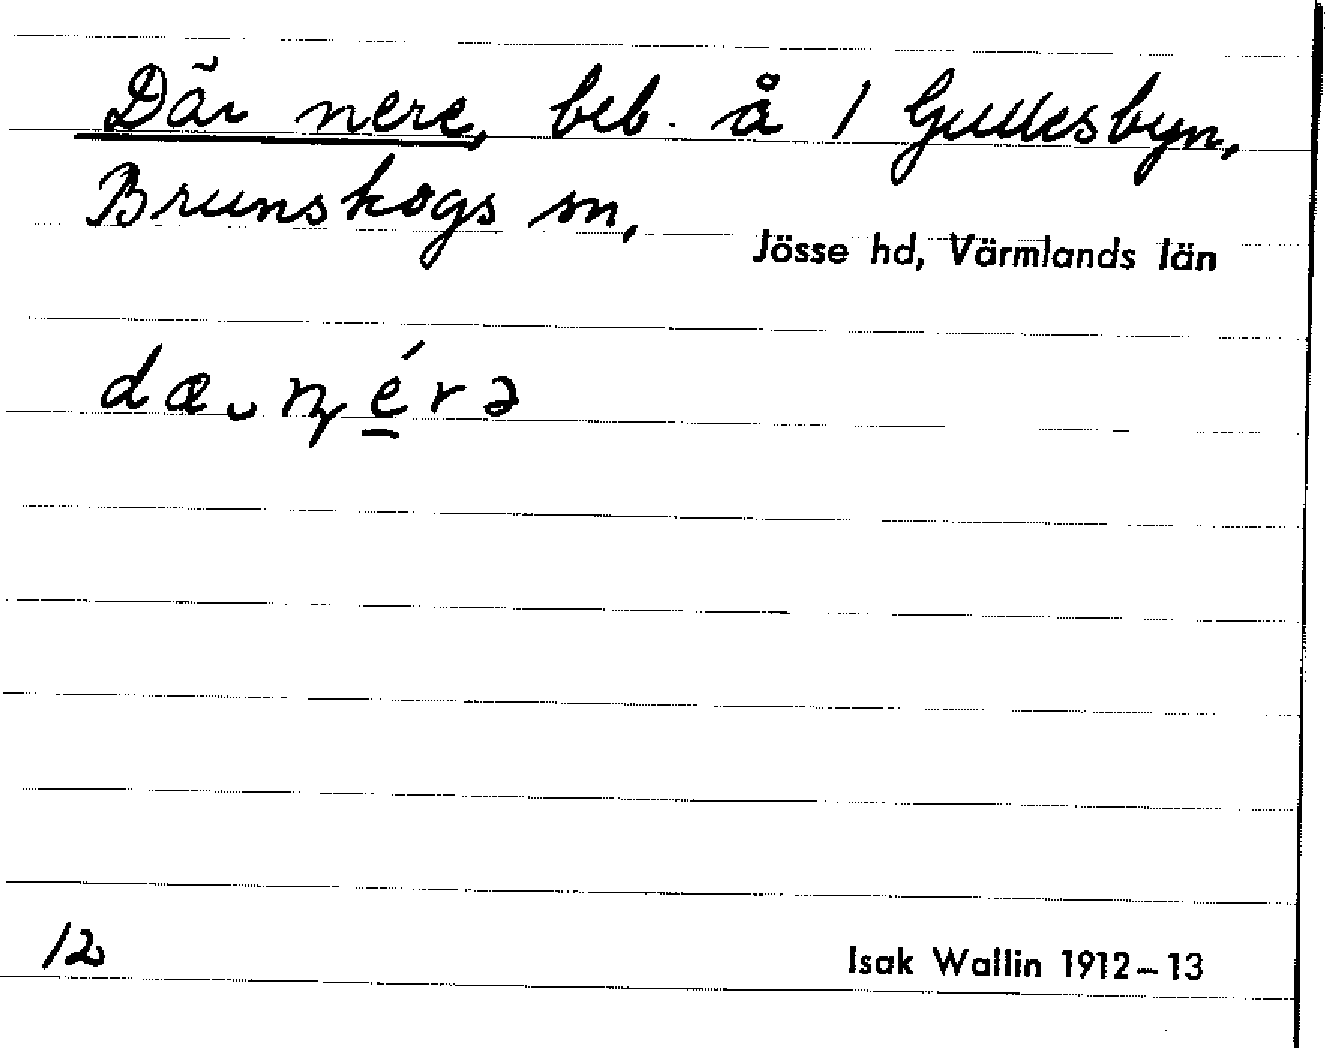 Där nere, beb. å 1 Gullesbyn,
Brunskogs sn,
Jösse hd, Värmlands län
dæ ˬ ɳ é̠ r ə
12
Isak Wallin 1912–13